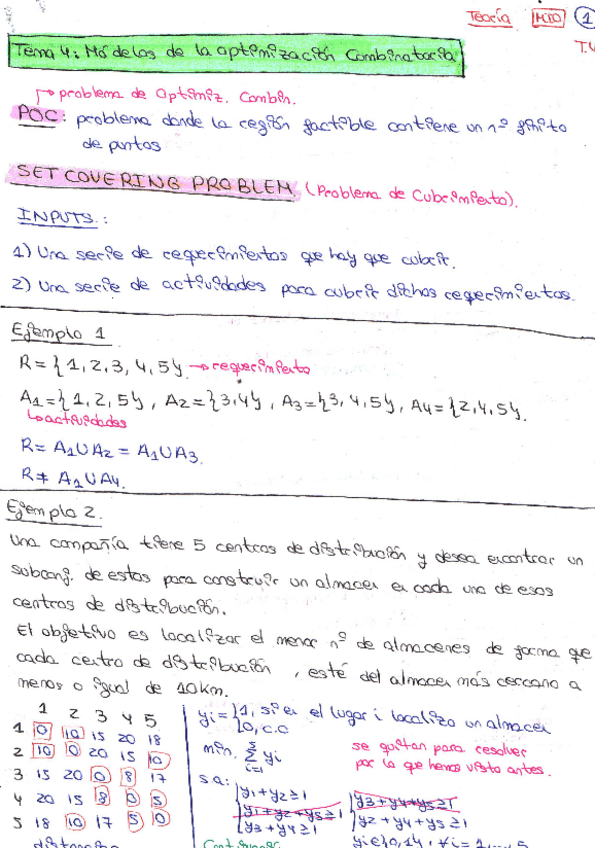 Teoría MIO 1
T.4
Tema 4: Módelos de la optimización Combinatoria
→ problema de Optimiz. Combin.
POC: problema donde la región factible contiene un nº finito
de puntos
SET COVERING PROBLEM. (Problema de Cubrimiento).
INPUTS.:
1) Una serie de requerimientos que hay que cubrir.
2) Una serie de actividades para cubrir dichos requerimientos.
Ejemplo 1
R = {1, 2, 3, 4, 5} → requerimiento
A1 = {1, 2, 5}, A2 = {3,4}, A3 = {3, 4, 5}, A4 = {2,4,5}.
↳ actividades
R = A1 U A2 = A1 U A3.
R ≠ A1 U A4.
Ejemplo 2.
Una compañía tiene 5 centros de distribución y desea encontrar un
subconj. de estos para construir un almacen en cada uno de esos
centros de distribución.
El objetivo es localizar el menor nº de almacenes de forma que
cada centro de distribución, esté del almacen más cercano a
menos o igual de 10km.
1 2 3 4 5
1 0 10 15 20 18
2 10 0 20 15 10
3 15 20 0 8 17
4 20 15 8 0 5
5 18 10 17 5 0
distancias
yi = {1, si en el lugar i localizo un almacen
0, c.c
min. Σ yi
i=1
se quitan para resolver
por lo que hemos visto antes.
s a:
y1 + y2 ≥ 1
y1 + y2 + y5 ≥ 1
y3 + y4 ≥ 1
y3 + y4 + y5 ≥ 1
y2 + y4 + y5 ≥ 1
yi ∈ {0,1}, ∀i = 1, ..., 5